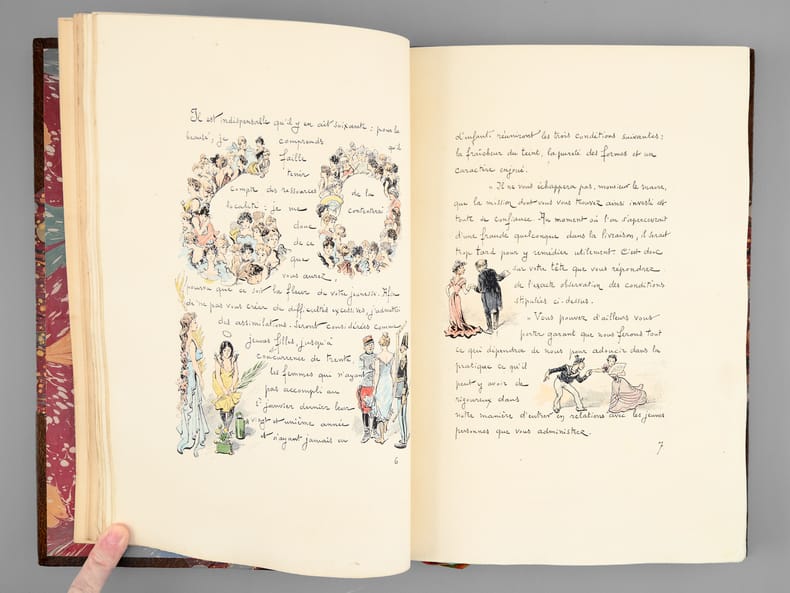 Il est indispensable qu'il y en ait soixante : pour la
beauté, je comprends qu'il
faille
tenir
compte des ressources de la
localité : je me contenterai
donc
de ce
que
vous aurez,
pourvu que ce soit la fleur de votre jeunesse. Afin
de ne pas vous créer de difficultés excessives, j'admettrai
des assimilations. Seront considérées comme
jeunes filles, jusqu'à
concurrence de trente,
les femmes qui n'ayant
pas accompli au
1er janvier dernier leur
vingt et unième année
et n'ayant jamais eu
6
d'enfant réuniront les trois conditions suivantes :
la fraîcheur du teint, la pureté des formes et un
caractère enjoué.
« Il ne vous échappera pas, monsieur le maire,
que la mission dont vous vous trouvez ainsi investi est
toute de confiance. Au moment où l'on s'apercevrait
d'une fraude quelconque dans la livraison, il serait
trop tard pour y remédier utilement. C'est donc
sur votre tête que vous répondrez
de l'exacte observation des conditions
stipulées ci-dessus.
« Vous pouvez d'ailleurs vous
porter garant que nous ferons tout
ce qui dépendra de nous pour adoucir dans la
pratique ce qu'il
peut y avoir de
rigoureux dans
notre manière d'entrer en relations avec les jeunes
personnes que vous administrez.
7